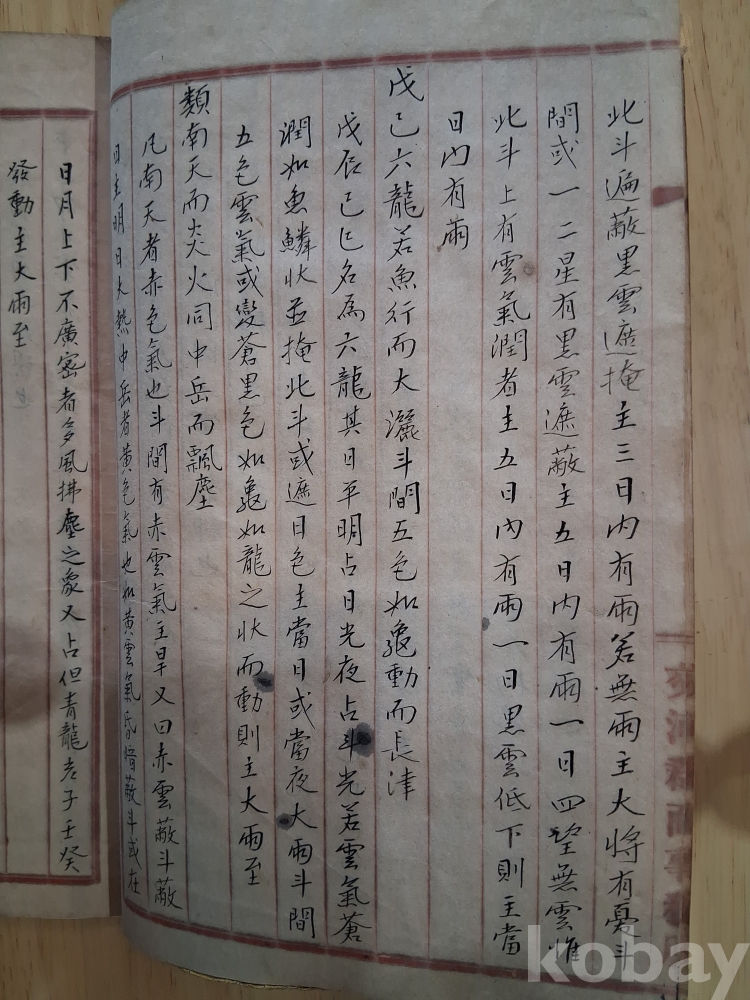 北斗遍蔽黒雲遮掩主三日内有雨若無雨主大將有憂斗
間或一二星有黒雲遮蔽主五日内有雨一日四望無雲惟
北斗上有雲氣潤者主五日内有雨一日黒雲低下則主當
日内有雨
戊己六龍若魚行而大灑斗間五色如龜動而長津
戊辰己巳名為六龍其日平明占日光夜占斗光若雲氣蒼
潤如魚鱗狀並掩北斗或遮日色主當日或當夜大雨斗間
五色雲氣或變蒼黒色如龜如龍之狀而動則主大雨至
類南天而炎火同中岳而飄塵
凡南天者赤色氣也斗間有赤雲氣主旱又曰赤雲蔽斗蔽
日主明日大熱中岳者黄色氣也如黄雲氣昏暗蔽斗或在
日月上下不廣密者多風拂塵之象又占但青龍老子壬癸
發動主大雨至
kobay